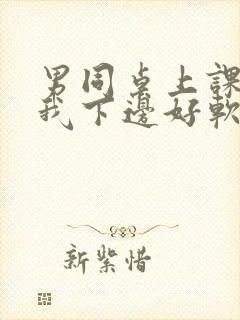 男同桌上課
我下邊好軟
新紫惜